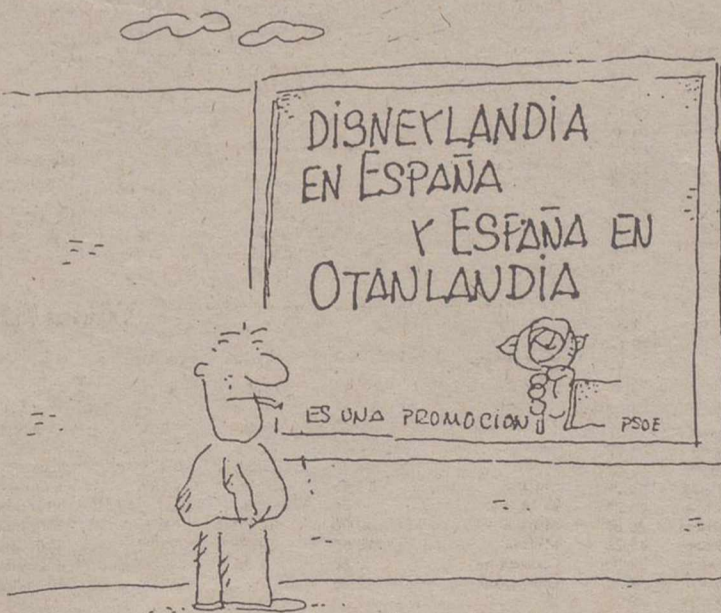 DiSNEYLANDiA
EN ESPAÑA
Y ESPAÑA EN
OTANLANDiA
ES UNA PROMOCION
PSOE